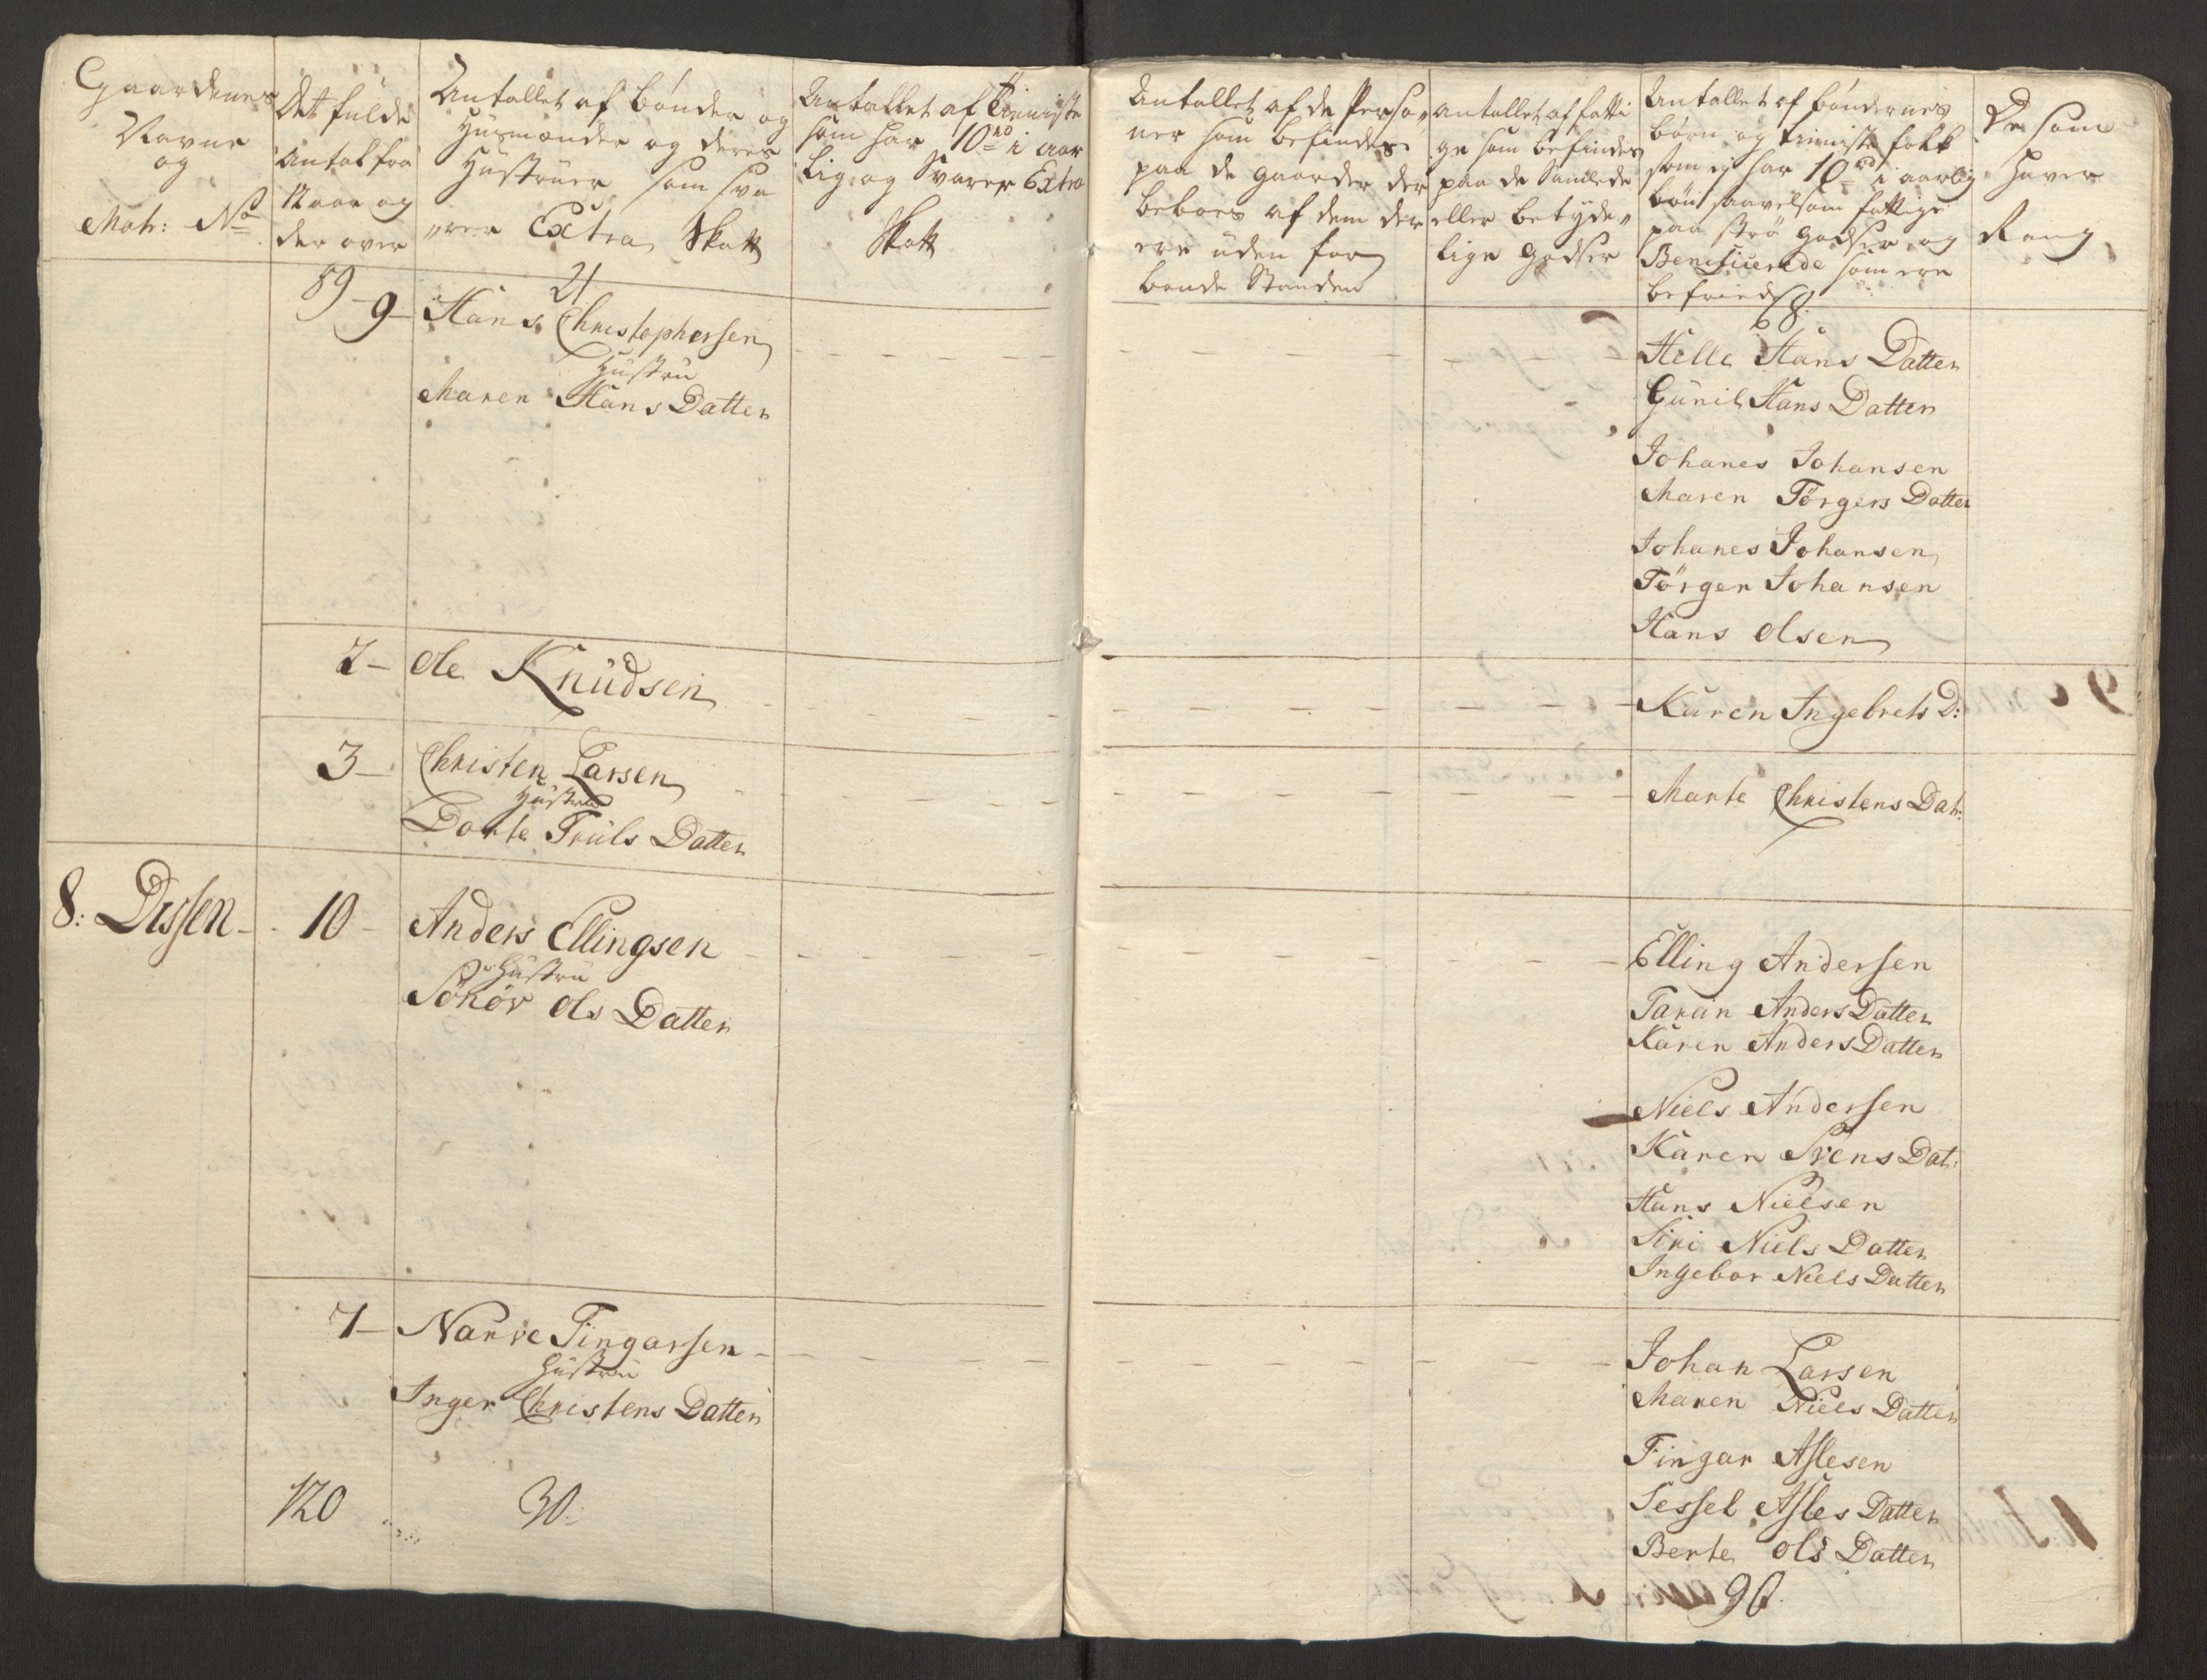 Gaardenes
Navne
og
Matr: No
Det fulde
Antal fra
12 aar og
der over
Antallet af bönder og
Huusmænder og deres
Hustruer som sva
"rer Extra Skatt
Antallet af Tieniste
som har 10 rd i aar
lig og Svarer Extra
Skatt
Antallet af de Perso"
ner som befindes
paa de gaarder der
beboes af dem der
ere uden for
bonde Standen
antallet af fatti
ge som befindes
paa de Samlede
eller betyde"
lige godser
Antallet af böndernes
börn og tieniste folk
som ej har 10 rd i aarlig
lön saavelsom fattige
paa strö godser og
Beneficerede som ere
befriede
De som
haver
Rang
89 21 68
9 – Hans Christophersen
Hustru
Maren Hans Datter
Helle Hans Datter
Gunil Hans Datter
Johanes Johansen
Maren Törgers Datter
Johanes Johansen
Törger Johansen
Hans Olsen
2 – Ole Knudsen
Karen Ingebrets D:
3 – Christen Larsen
Hustru
Dorte Truls Datter
Marte Christens Datr:
8: Dissen – 10 – Anders Ellingsen
Hustru
Sönöv Ols Datter
Elling Andersen
Taran Anders Datter
Karen Anders Datter
Niels Andersen
Karen Svens Dat:
Hans Nielsen
Siri Niels Datter
Ingebor Niels Datter
7 – Narve Fingarsen
Hustru
Inger Christens Datter
Johan Larsen
Maren Niels Datter
Fingar Aslesen
Sessel Asles Datter
Berte Ols Datter
120 30. 90.